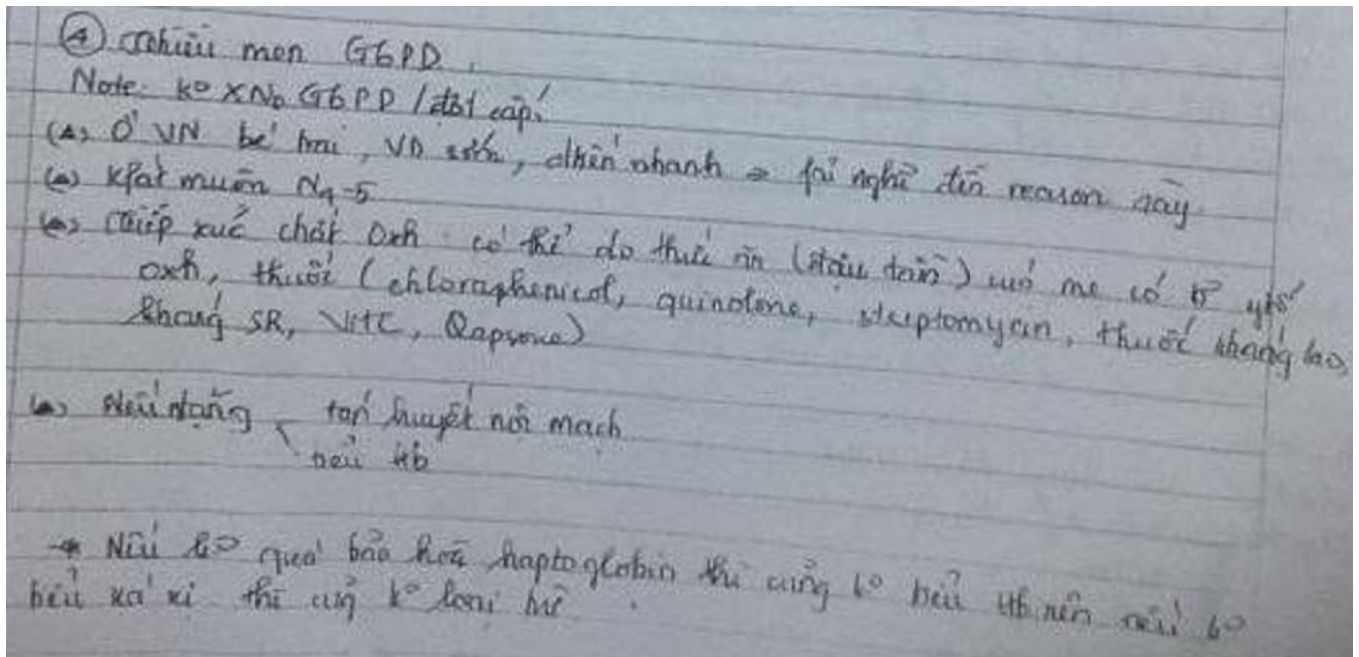 ④ Thiếu men G6PD.
Note: k° XN₀ G6PD / đợt cấp.
Ở VN bé trai, VD sớm, diễn nhanh → fải nghĩ đến reason này
Kfát muộn N4-5
Tiếp xúc chất oxh có thể do thức ăn (đậu tằm) mẹ có
oxh, thuốc (chloraphenicol, quinolone, streptomycin, thuốc kháng lao,
kháng SR, VitC, Dapsone)
Nếu nặng tán huyết nội mạch
tiểu Hb
→ Nếu k° quá bão hoà haptoglobin thì cũng k° tiểu Hb nên nếu k°
tiểu xá xị thì cũng k° loại trừ.